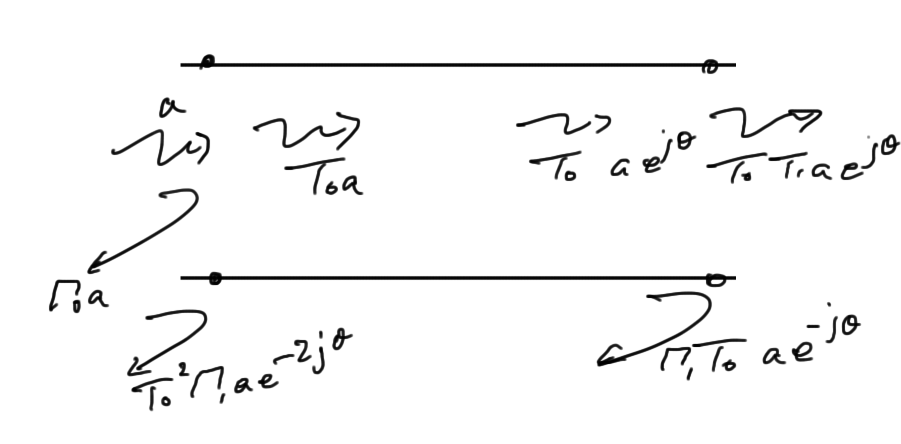 a
T₀a
T₀ a e^{jθ}
T₀ T₁ a e^{jθ}
Γ₀a
T₀² Γ₁ a e^{-2jθ}
Γ₁ T₀ a e^{-jθ}